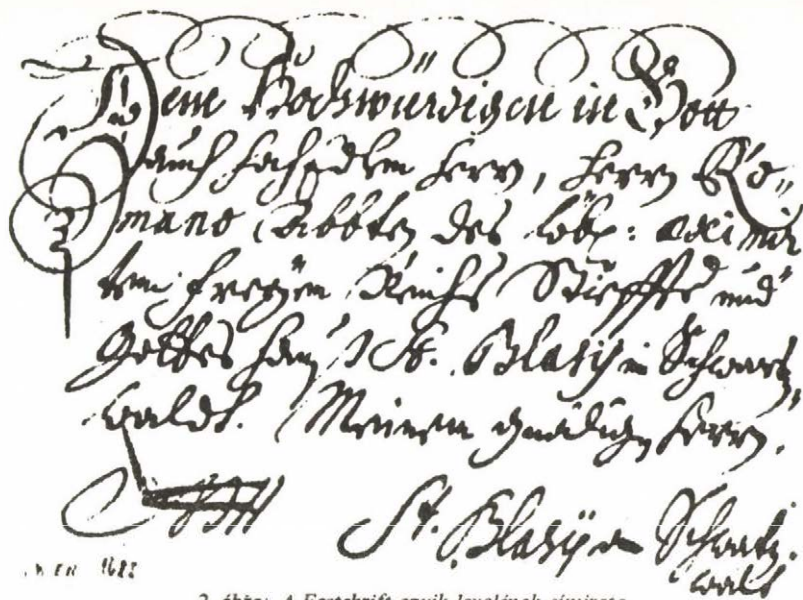 Dem Hochwürdigen in Gott
auch Hochedlem Herrn, Herrn Ro„
mano Abbten des löbl: eximir
tem freyen Reichs Stiffts und
Gottes Hauß St. Blasij in Schwartz„
waldt. Meinem gnädign Herrn.
St. Blasij in Schwartz„
waldt
WIEN 1688
2. ábra: A Festschrift egyik levelének címirata